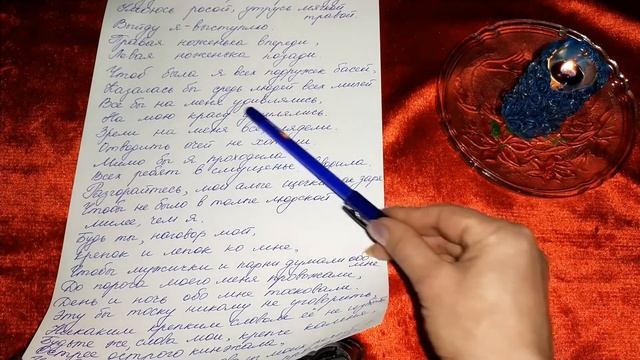 Умоюсь росой, утрусь мягкой
травой.
Выйду я-выступлю.
Правая ноженька впереди,
Левая ноженька позади.
Чтоб была я всех подружек басей,
Казалась бы средь людей всех милей
Все бы на меня удивлялись,
На мою красу
Зрели на меня все глядели.
Отводить очей не хотели
Мимо бы я проходила
Всех ребят в смущенье
Разгорайтесь, мои алые щёчки заря
Чтобы не было в толпе людской
милее, чем я.
Будь ты, наговор мой,
Крепок и лепок ко мне,
Чтобы мужички и парни думали обо
мне
До порога моего меня провожали,
День и ночь обо мне тосковали.
Эту бы тоску никому не уговорить,
Никаким крепким словом её не
Будьте же, слова мои, крепче камня,
Острее острого кинжала,